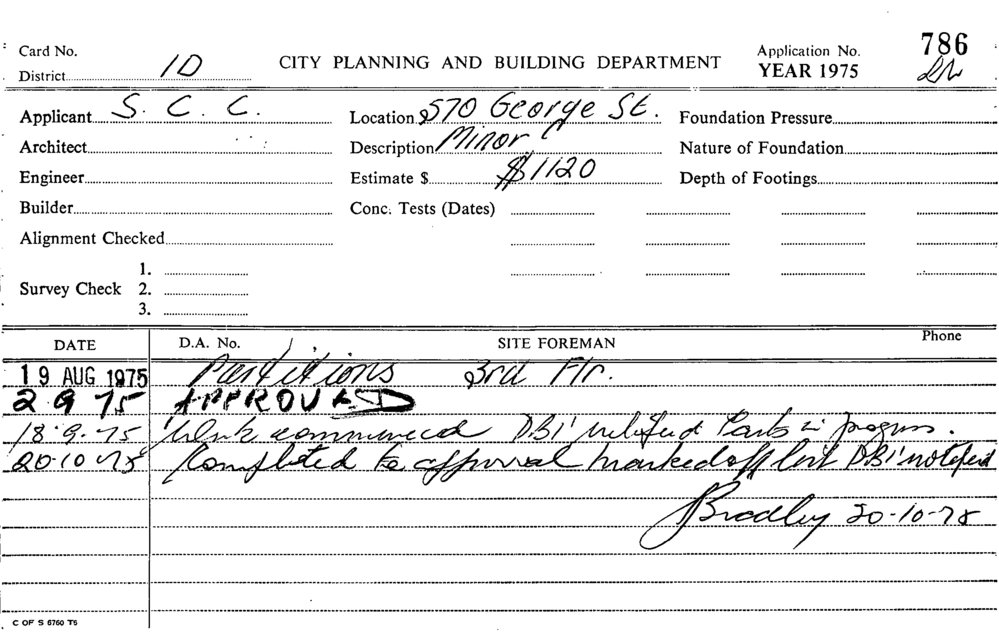 Card No.
District 1D
CITY PLANNING AND BUILDING DEPARTMENT
Application No. 786
YEAR 1975
Applicant S. C. C. Location 570 George St. Foundation Pressure
Architect Description Minor Nature of Foundation
Engineer Estimate $ $1120 Depth of Footings
Builder Conc. Tests (Dates)
Alignment Checked
1.
Survey Check 2.
3.
DATE D.A. No. SITE FOREMAN Phone
19 AUG 1975 Partitions 3rd Flr.
2 9 75 APPROVED
18.9.75 Work commenced DBI notified in progress.
20.10.75 Completed to approval marked off DBI notified
Bradley 20-10-75
C OF S 6760 T5